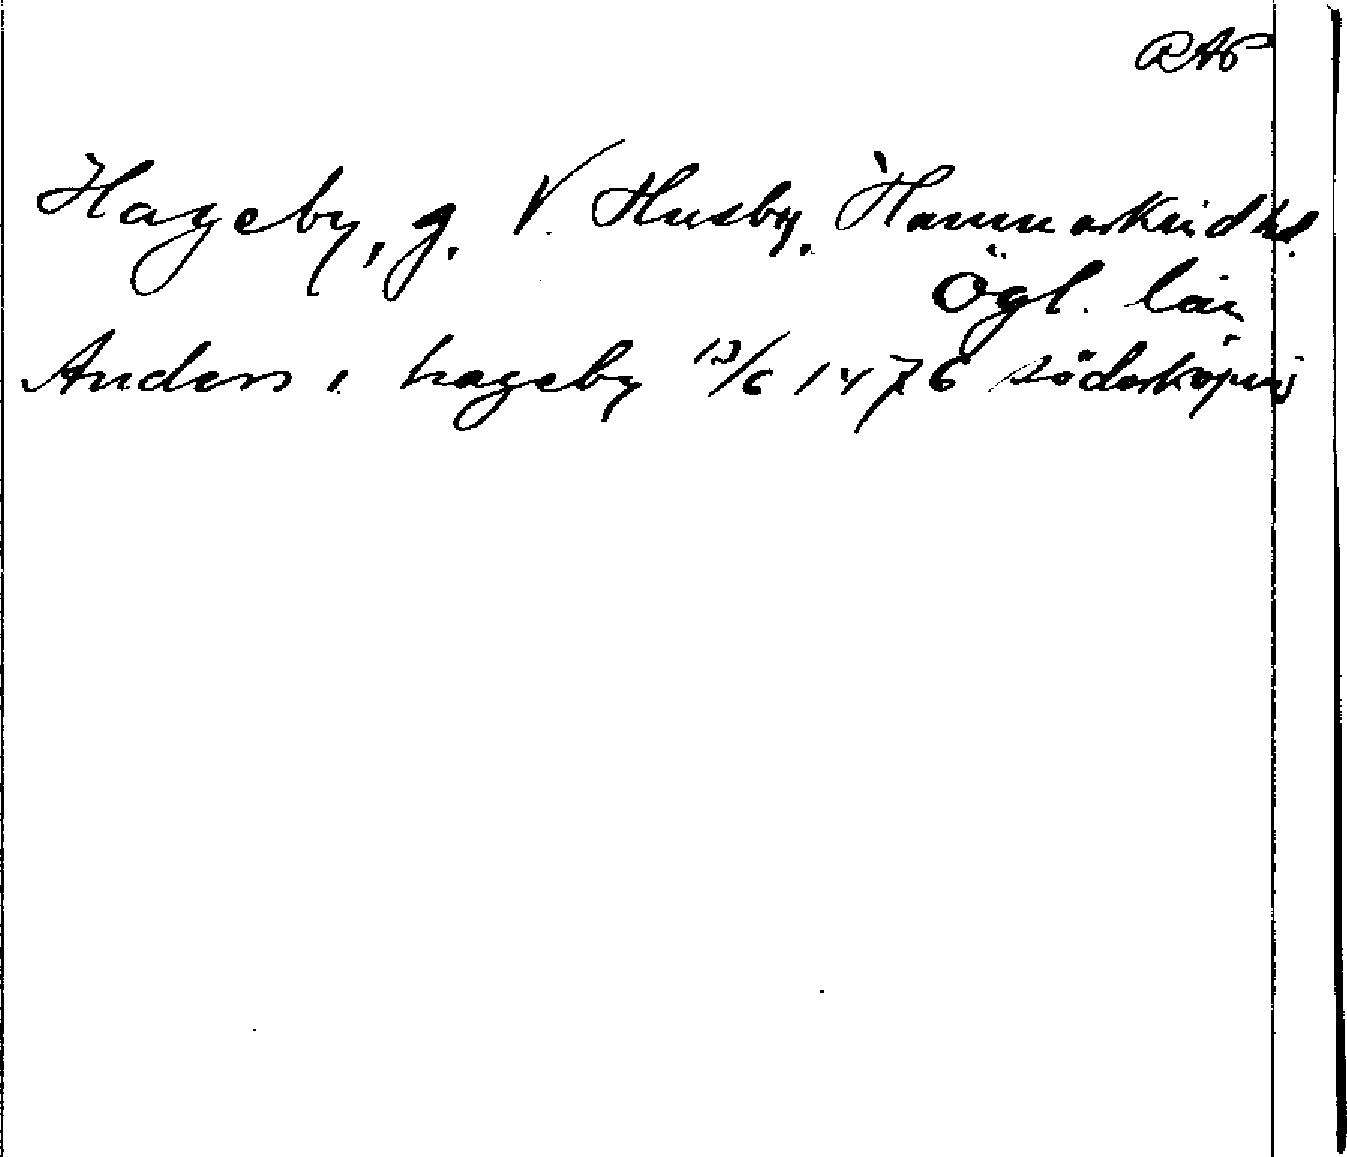 RAp
Hageby, g. V. Husby, Hammarkinds hd.
Ögl. län
Anders i hageby 13/6 1476 söderköping